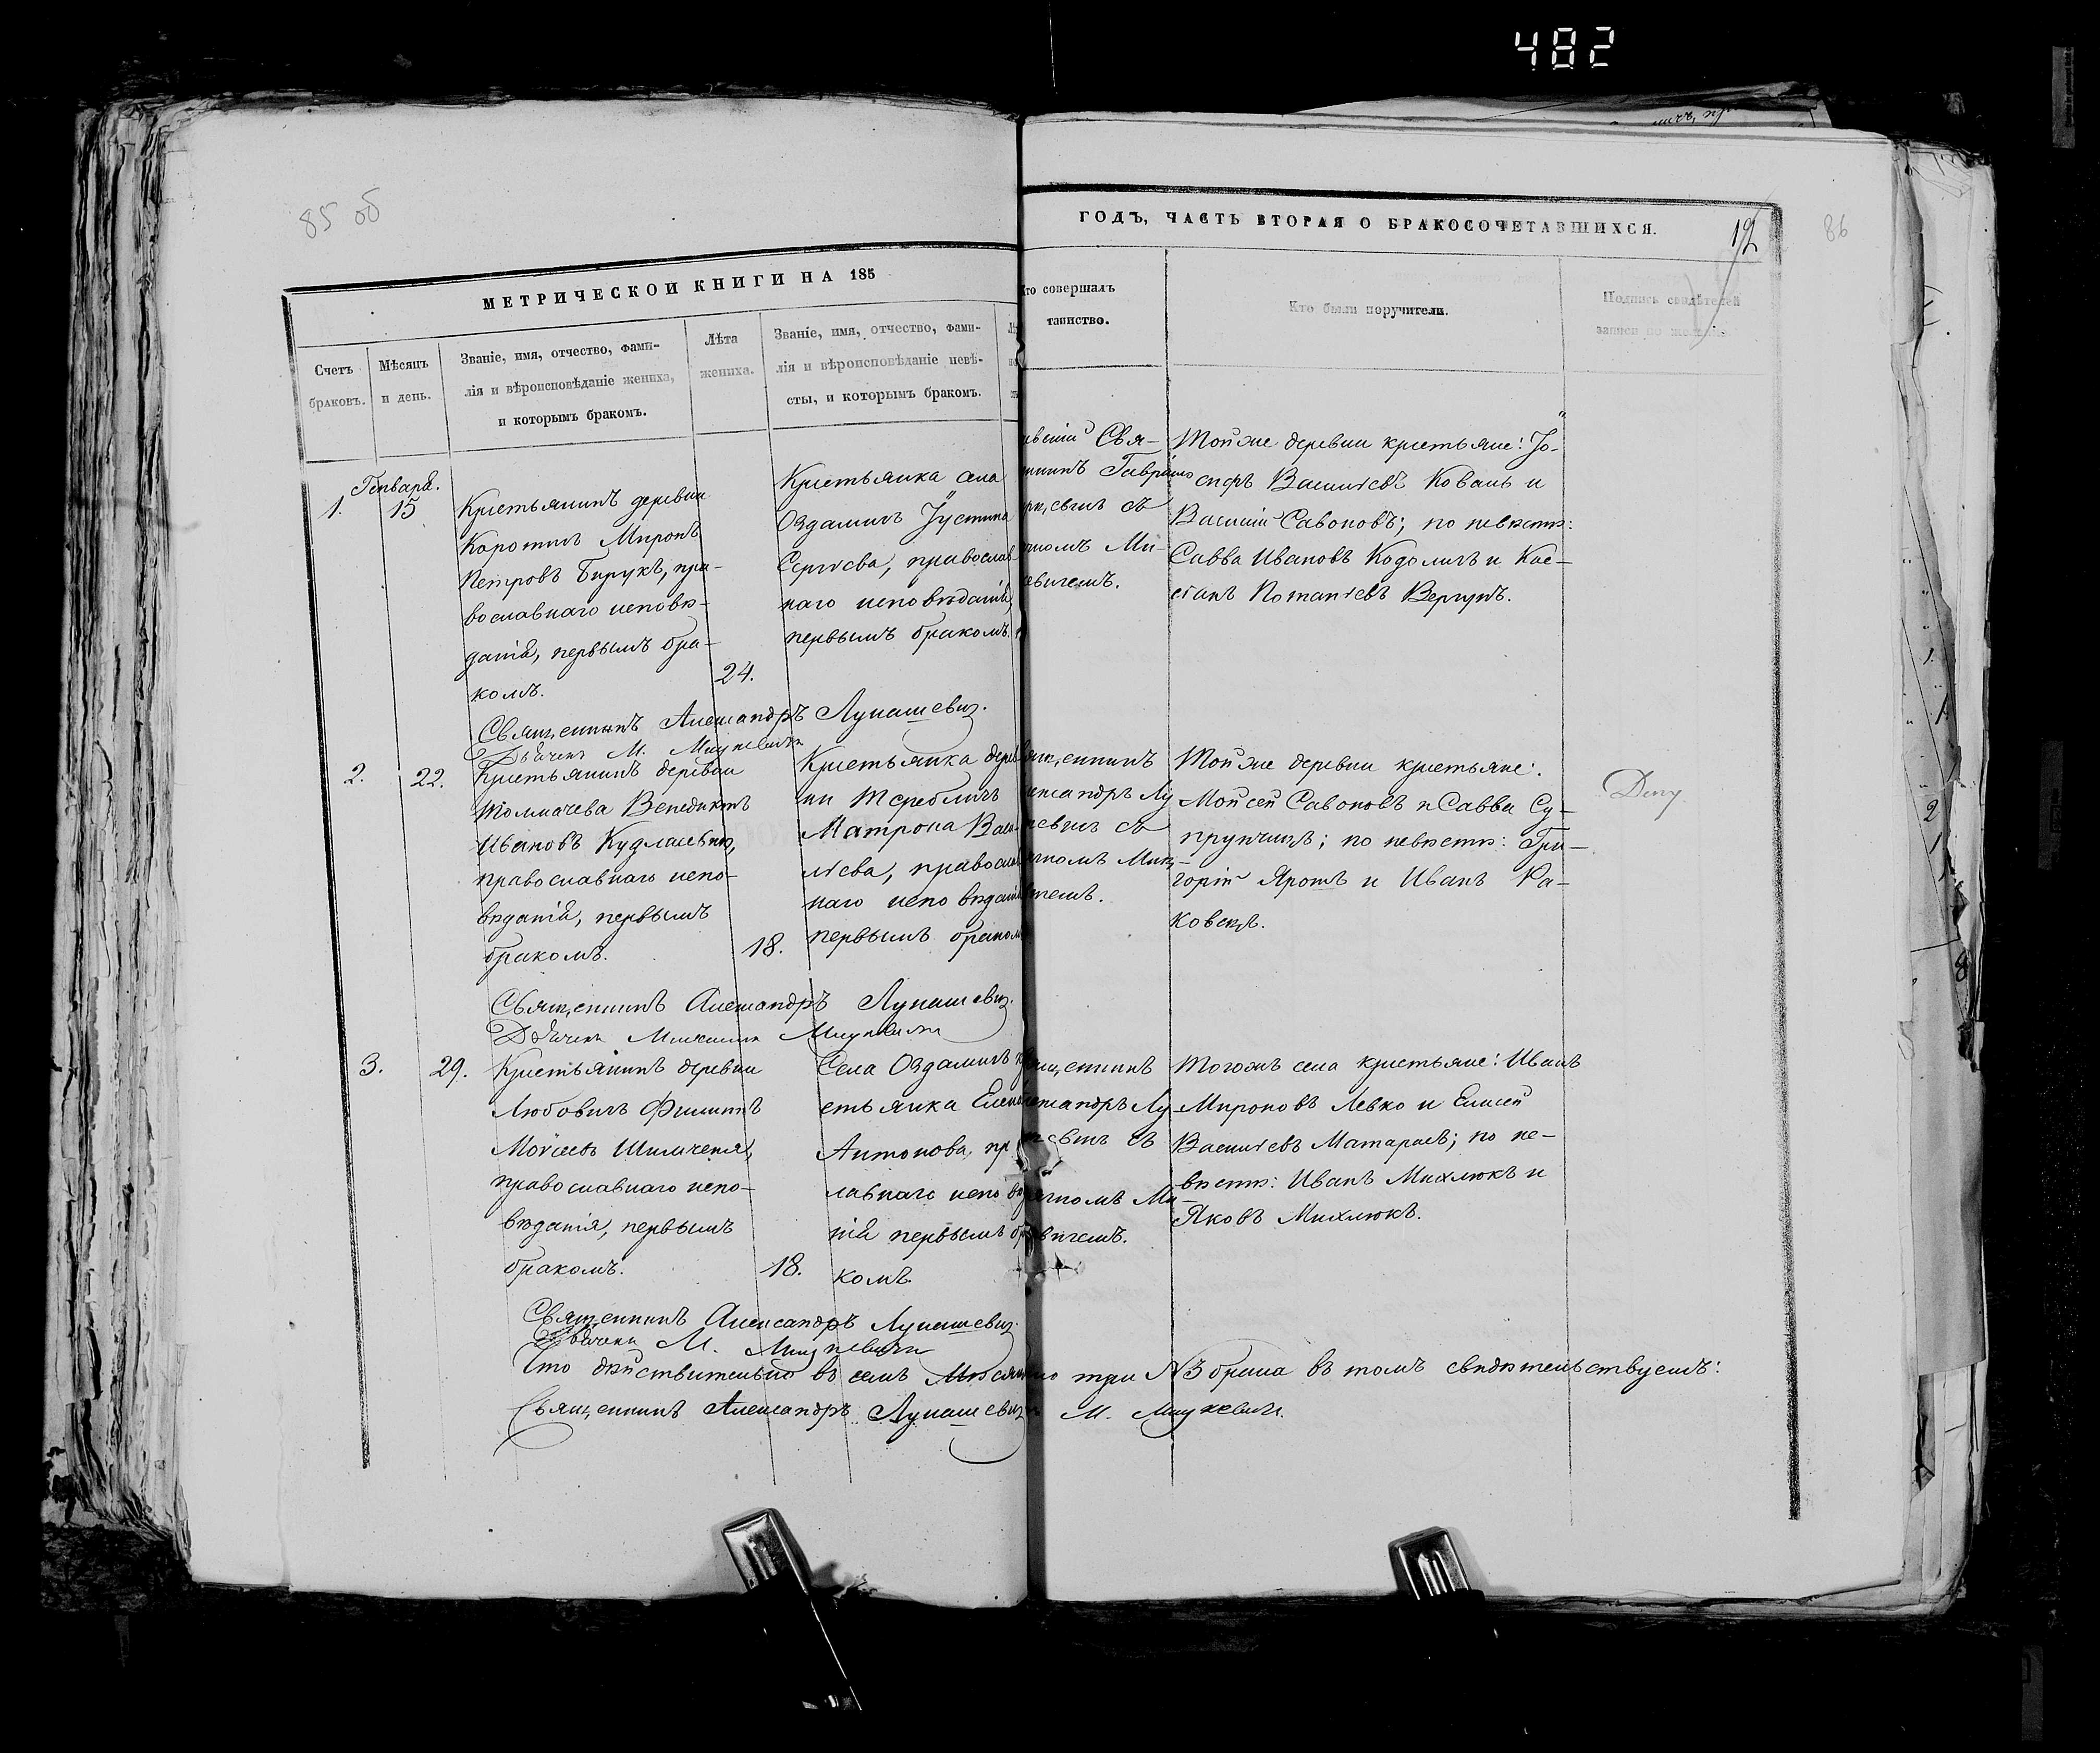 482
85 об
86
12
МЕТРИЧЕСКОЙ КНИГИ НА 185
ГОДЪ, ЧАСТЬ ВТОРАЯ О БРАКОСОЧЕТАВШИХСЯ.
Счетъ
браковъ.
Мѣсяцъ
и день.
Званіе, имя, отчество, фами-
лія и вѣроисповѣданіе жениха,
и которымъ бракомъ.
Лѣта
жениха.
Званіе, имя, отчество, фами-
лія и вѣроисповѣданіе невѣ-
сты, и которымъ бракомъ.
Кто совершалъ
таинство.
Кто были поручители.
Подпись свидѣтелей
записи по
Генваря.
1.
15
Крестьянинъ деревни
Коротичъ Миронъ
Петровъ Бирукъ, пра-
вославнаго исповѣ-
данія, первымъ бра-
комъ.
24.
Крестьянка села
Оздамичъ Іустина
Сергіева, православ
наго исповѣданія,
первымъ бракомъ.
Свя-
Гаврі
съ
Ми-
евичемъ.
Той же деревни крестьяне: Іо-
сифъ Василіевъ Коваль и
Василій Савоновъ; по невѣстѣ:
Савва Ивановъ Кодоличъ и Кас-
ганъ Потапіевъ Вергунъ.
Священникъ Александръ Лукашевич.
Дьячекъ М. Мицкевичъ
2.
22.
Крестьянинъ деревни
Толмачева Венедиктъ
Ивановъ Кудласевич,
православнаго испо-
вѣданія, первымъ
бракомъ.
18.
Крестьянка дерев
ни Теребличъ
Матрона Васи-
ліева, православ
наго исповѣданія
первымъ бракомъ
енникъ
ександръ Лу
съ
Миц-
Той же деревни крестьяне:
Мойсей Савоновъ и Савва Су-
прунчикъ; по невѣстѣ: Гри-
горій Яротъ и Иванъ Ра-
ковецъ.
Священникъ Александръ Лукашевич.
Дьячекъ Мицкевичъ
3.
29.
Крестьянинъ деревни
Любовичъ Филиппъ
Мойсеевъ Шиличеня,
православнаго испо-
вѣданія, первымъ
бракомъ.
18.
Села Оздамичъ кре
стьянка Елена
Антонова, пр
лавнаго исповѣда
нія первымъ бра
комъ.
щенникъ
ександръ Лу-
съ
Ми-
вичемъ.
Тогожъ села крестьяне: Иванъ
Мироновъ Левко и Елисей
Василіевъ Матарасъ; по не-
вѣстѣ: Иванъ Михлюкъ и
Яковъ Михлюкъ.
Священникъ Александръ Лукашевич.
Дьячекъ М. Мицкевичъ
Что дѣйствительно въ семъ Мѣсяцѣ три №3 брака въ томъ свидѣтельствуемъ:
Священникъ Александръ Лукашевич М. Мицкевичъ.